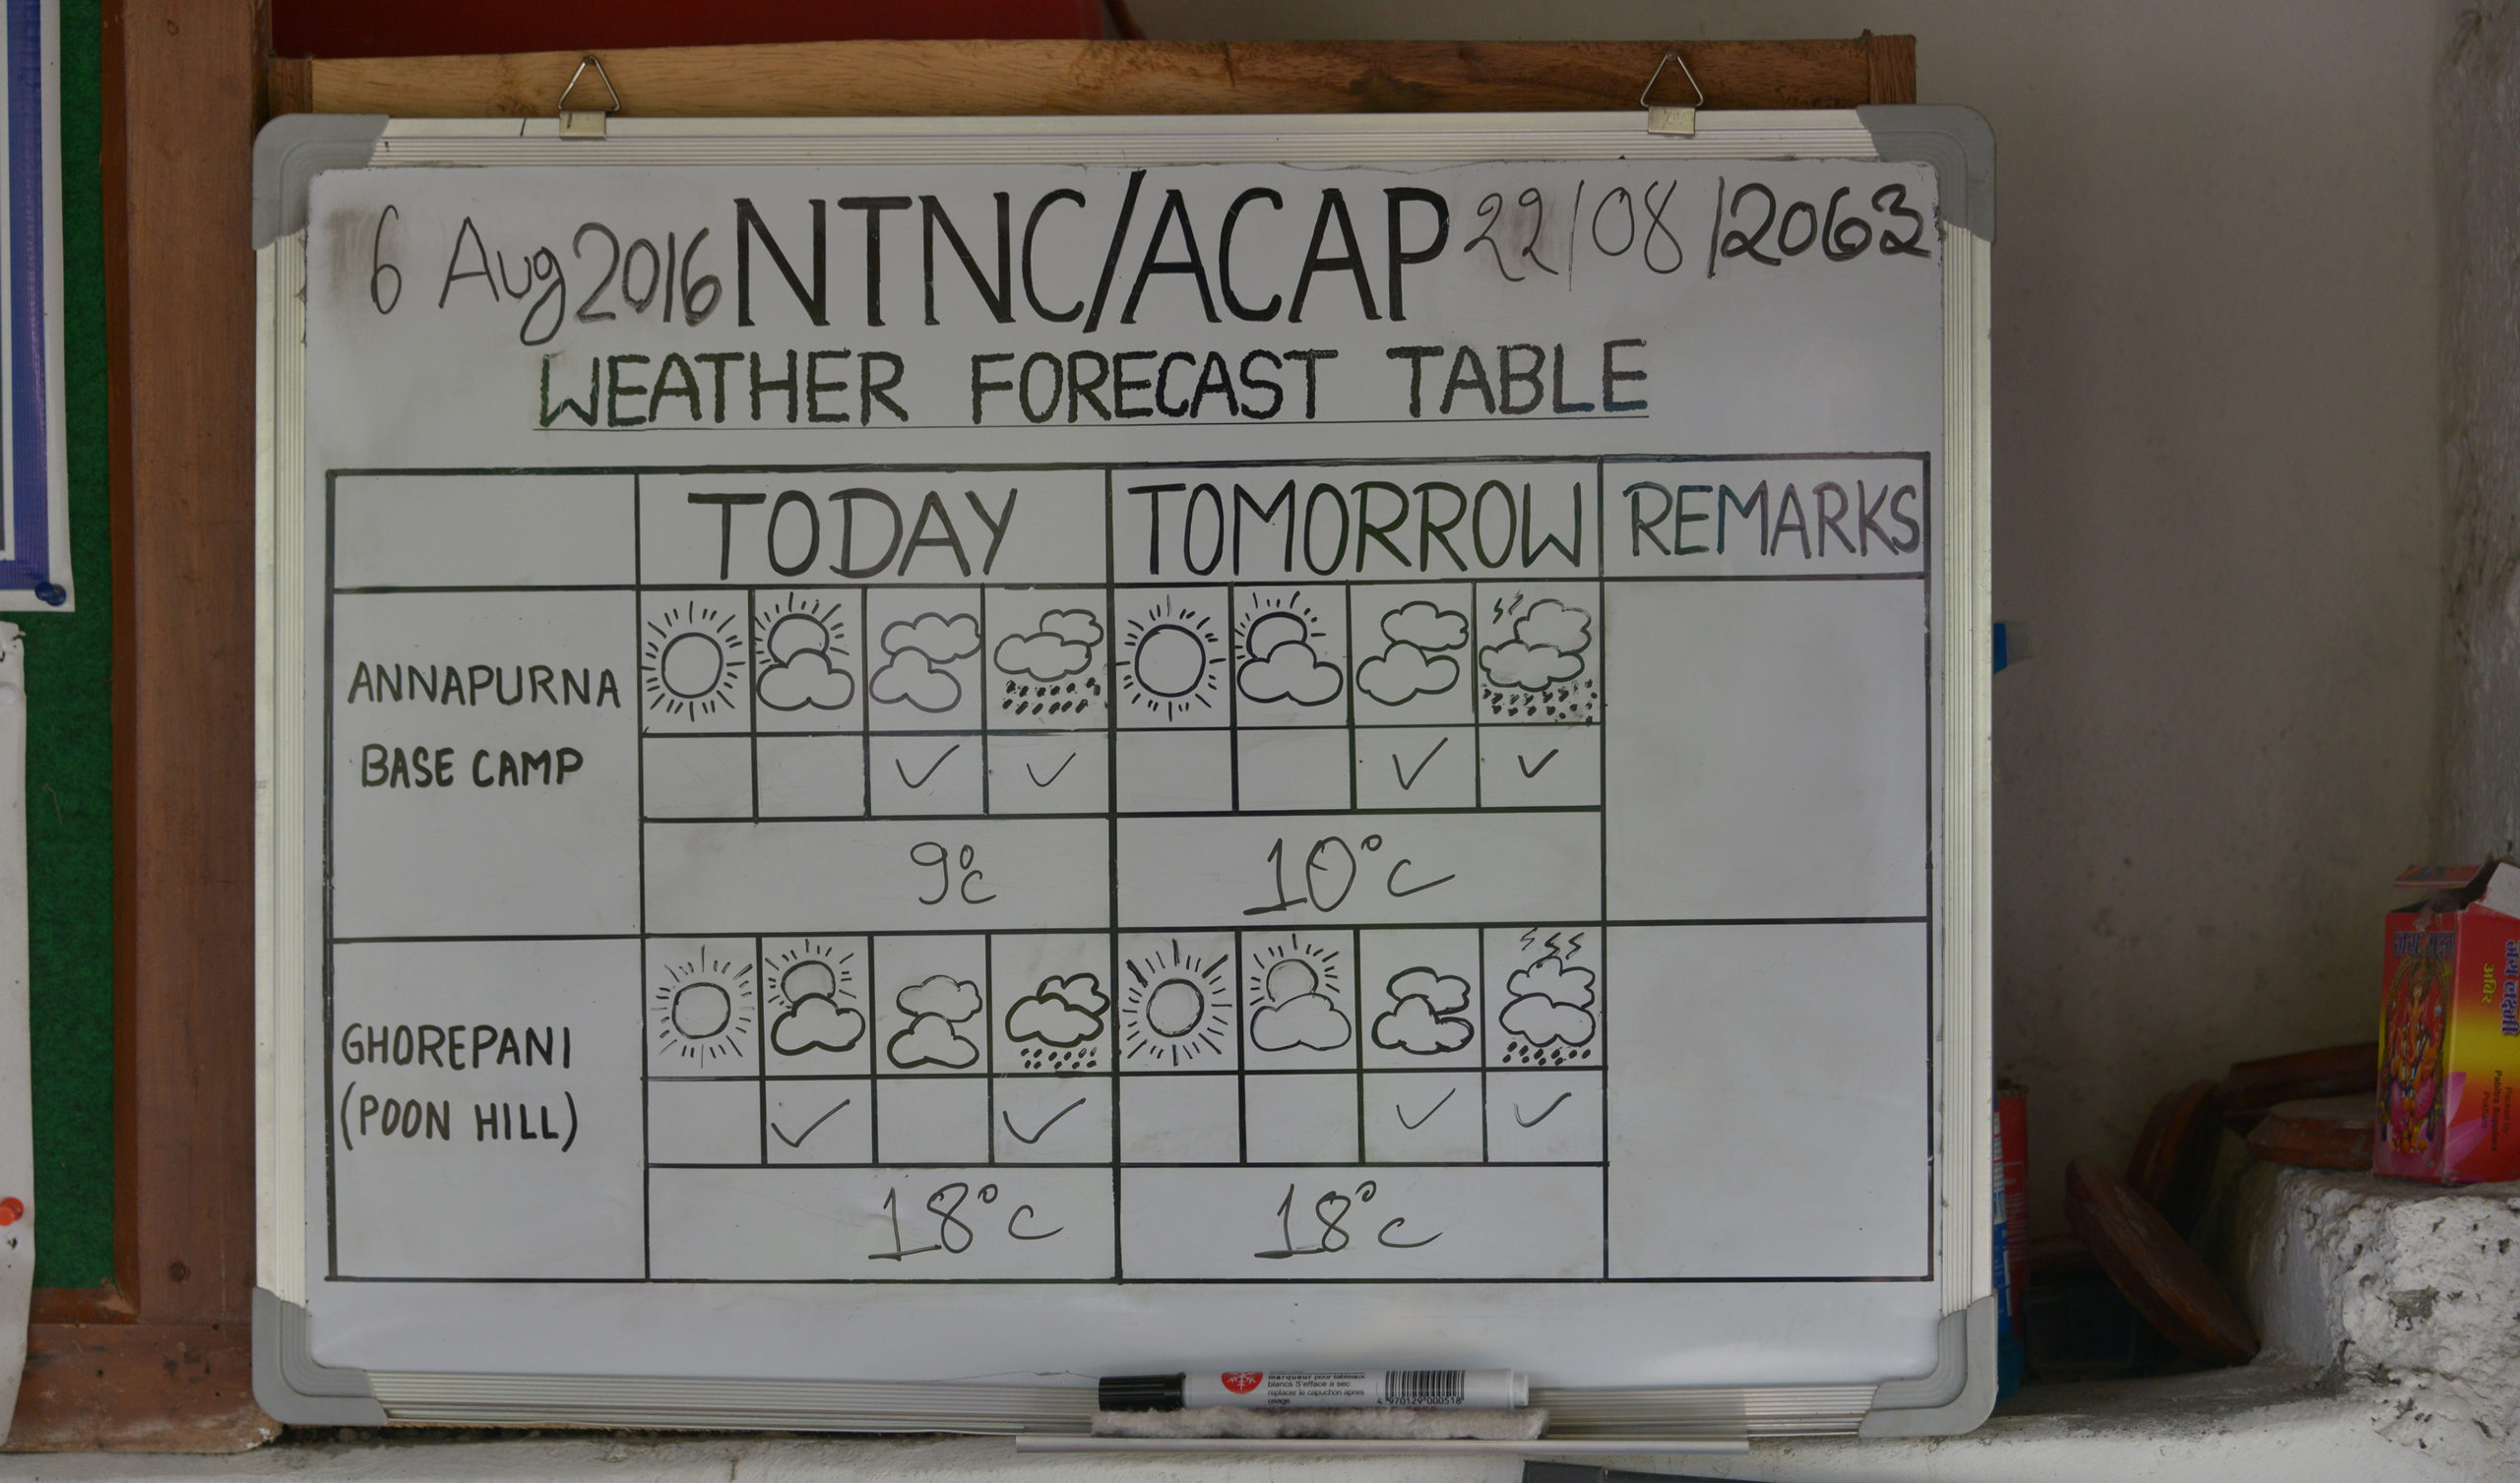 6 Aug 2016 NTNC/ACAP 22/08/2063
WEATHER FORECAST TABLE
TODAY TOMORROW REMARKS
ANNAPURNA
BASE CAMP
9°C 10°C
GHOREPANI
(POON HILL)
18°C 18°C
marqueur pour tableaux
blancs S'efface a sec
replacer le capuchon apres
usage
4 970129 000518